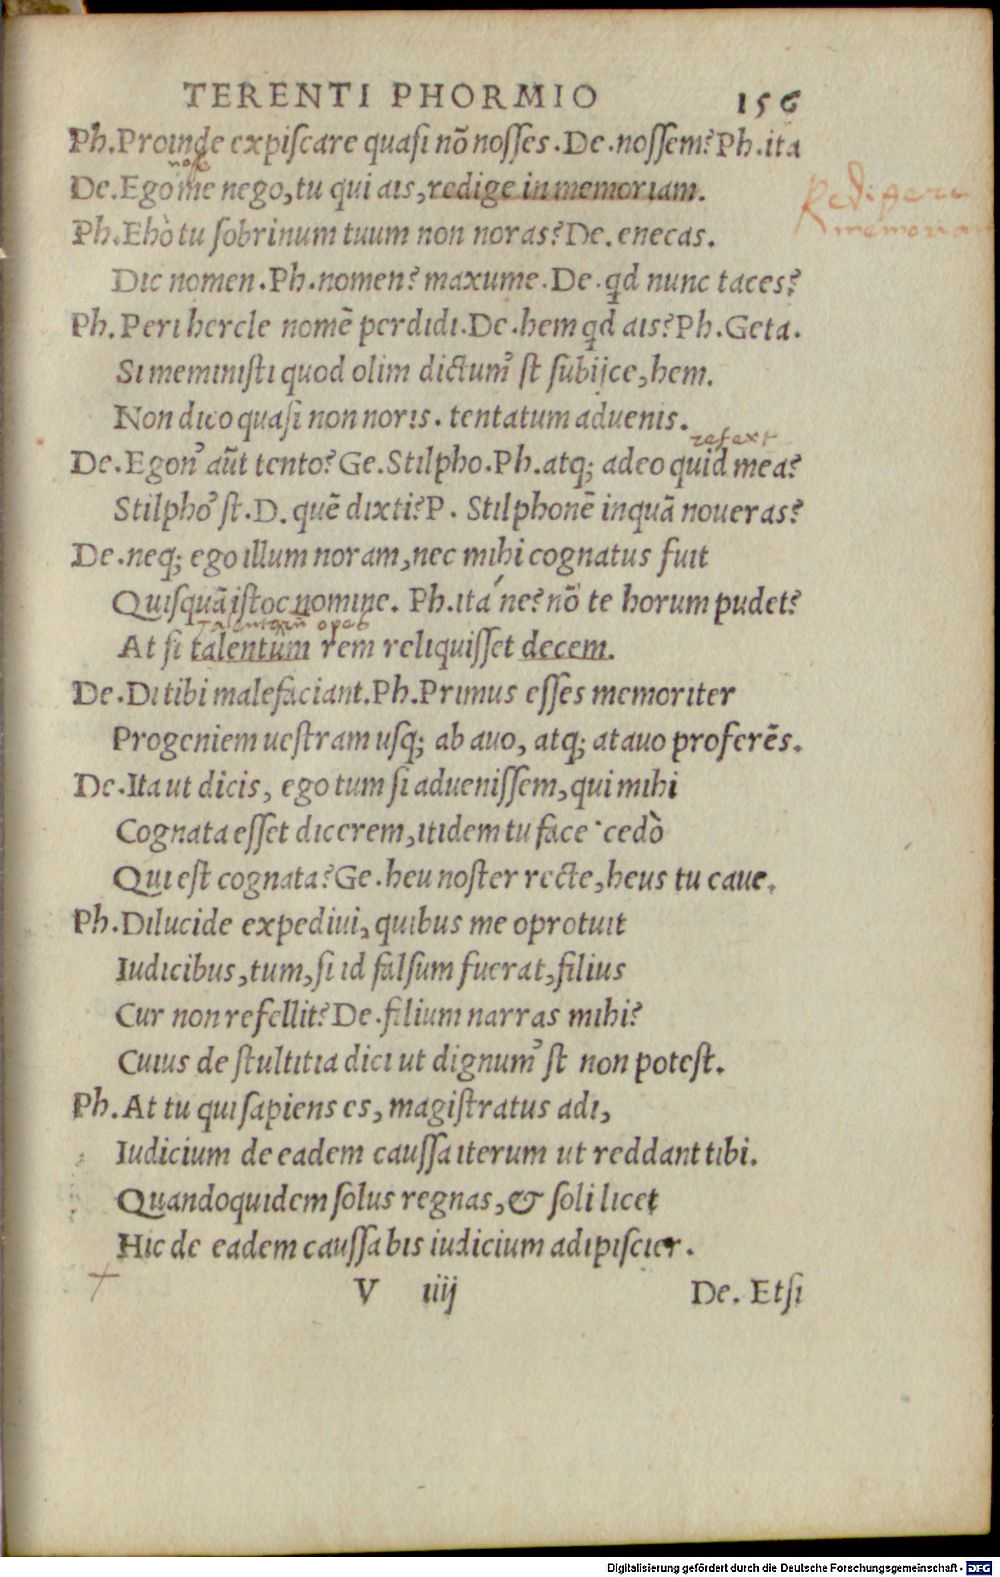 TERENTI PHORMIO 156
Ph.Proinde expiſcare quaſi nō noſſes.De.noſſem?Ph.ita
noſſe
De.Ego me nego,tu qui ais,redige in memoriam.
Redigere
memoriam
Ph.Ehò tu ſobrinum tuum non noras?De.enecas.
Dic nomen.Ph.nomen?maxume.De.qd nunc taces?
Ph.Peri hercle nomē perdidi.De.hem qd ais?Ph.Geta.
Si meminiſti quod olim dictum'ſt ſubijce,hem.
Non dico quaſi non noris.tentatum aduenis.
refert
De.Egon'aūt tento?Ge.Stilpho.Ph.atq; adeo quid mea?
Stilpho'ſt.D.quē dixti?P. Stilphonē inquā noueras?
De.neq; ego illum noram,nec mihi cognatus fuit
Quiſquā iſtoc nomine. Ph.ita'ne?nō te horum pudet?
Talentorū opes
At ſi talentum rem reliquiſſet decem.
De.Di tibi malefaciant.Ph.Primus eſſes memoriter
Progeniem ueſtram uſq; ab auo, atq; atauo proferēs.
De.Ita ut dicis, ego tum ſi adueniſſem,qui mihi
Cognata eſſet dicerem,itidem tu face·cedò
Qui eſt cognata?Ge.heu noſter recte,heus tu caue.
Ph.Dilucide expediui,quibus me oprotuit
Iudicibus,tum,ſi id falſum fuerat,filius
Cur non refellit?De.filium narras mihi?
Cuius de ſtultitia dici ut dignum'ſt non poteſt.
Ph.At tu qui ſapiens es,magiſtratus adi,
Iudicium de eadem cauſſa iterum ut reddant tibi.
Quandoquidem ſolus regnas,& ſoli licet
Hic de eadem cauſſa bis iudicium adipiſcier.
V iiij De. Etſi
Digitalisierung gefördert durch die Deutsche Forschungsgemeinschaft - DFG